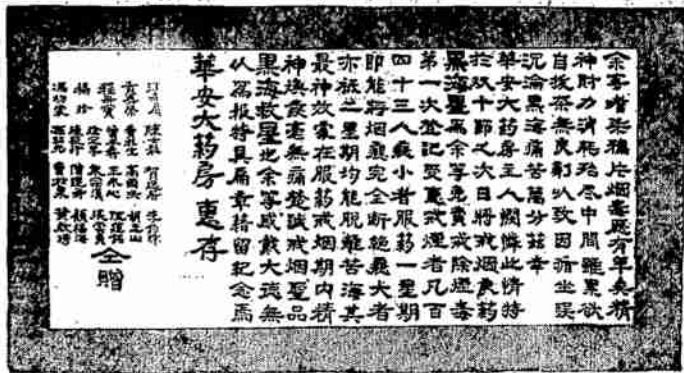 余等嗜染鴉片烟毒歷有年矣精
神財力消耗殆盡中間雖累欲
自拔奈無良劑以致因循坐誤
沉淪黑海痛苦萬分茲幸
華安大药房主人憫憐此情特
於双十節之次日將戒烟良药
黑海星為余等免費戒除烟毒
第一次登記受惠戒煙者凡百
四十三人癮小者服药一星期
即能將烟癮完全斷絕癮大者
亦祇二星期均能脫離苦海其
最神效處在服药戒烟期内精
神煥發毫無痛楚誠戒烟聖品
黑海救星也余等感戴大德無
以為報特具扁章藉留紀念焉
華安大药房惠存
仝贈